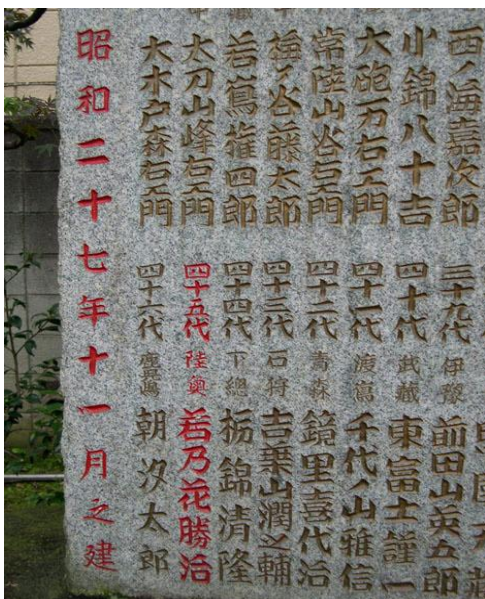 西ノ海嘉次郎
小錦八十吉
大砲万右エ門
常陸山谷右エ門
梅ノ谷藤太郎
若嶌権四郎
大刀山峰右エ門
大木戸森右エ門
三十九代 伊豫 前田山英五郎
四十代 武蔵 東富士謹一
四十一代 渡嶌 千代ノ山雅信
四十二代 青森 鏡里喜代治
四十三代 石狩 吉葉山潤之輔
四十四代 下總 栃錦清隆
四十五代 陸奥 若乃花勝治
四十六代 朝汐太郎
昭和二十七年十一月之建